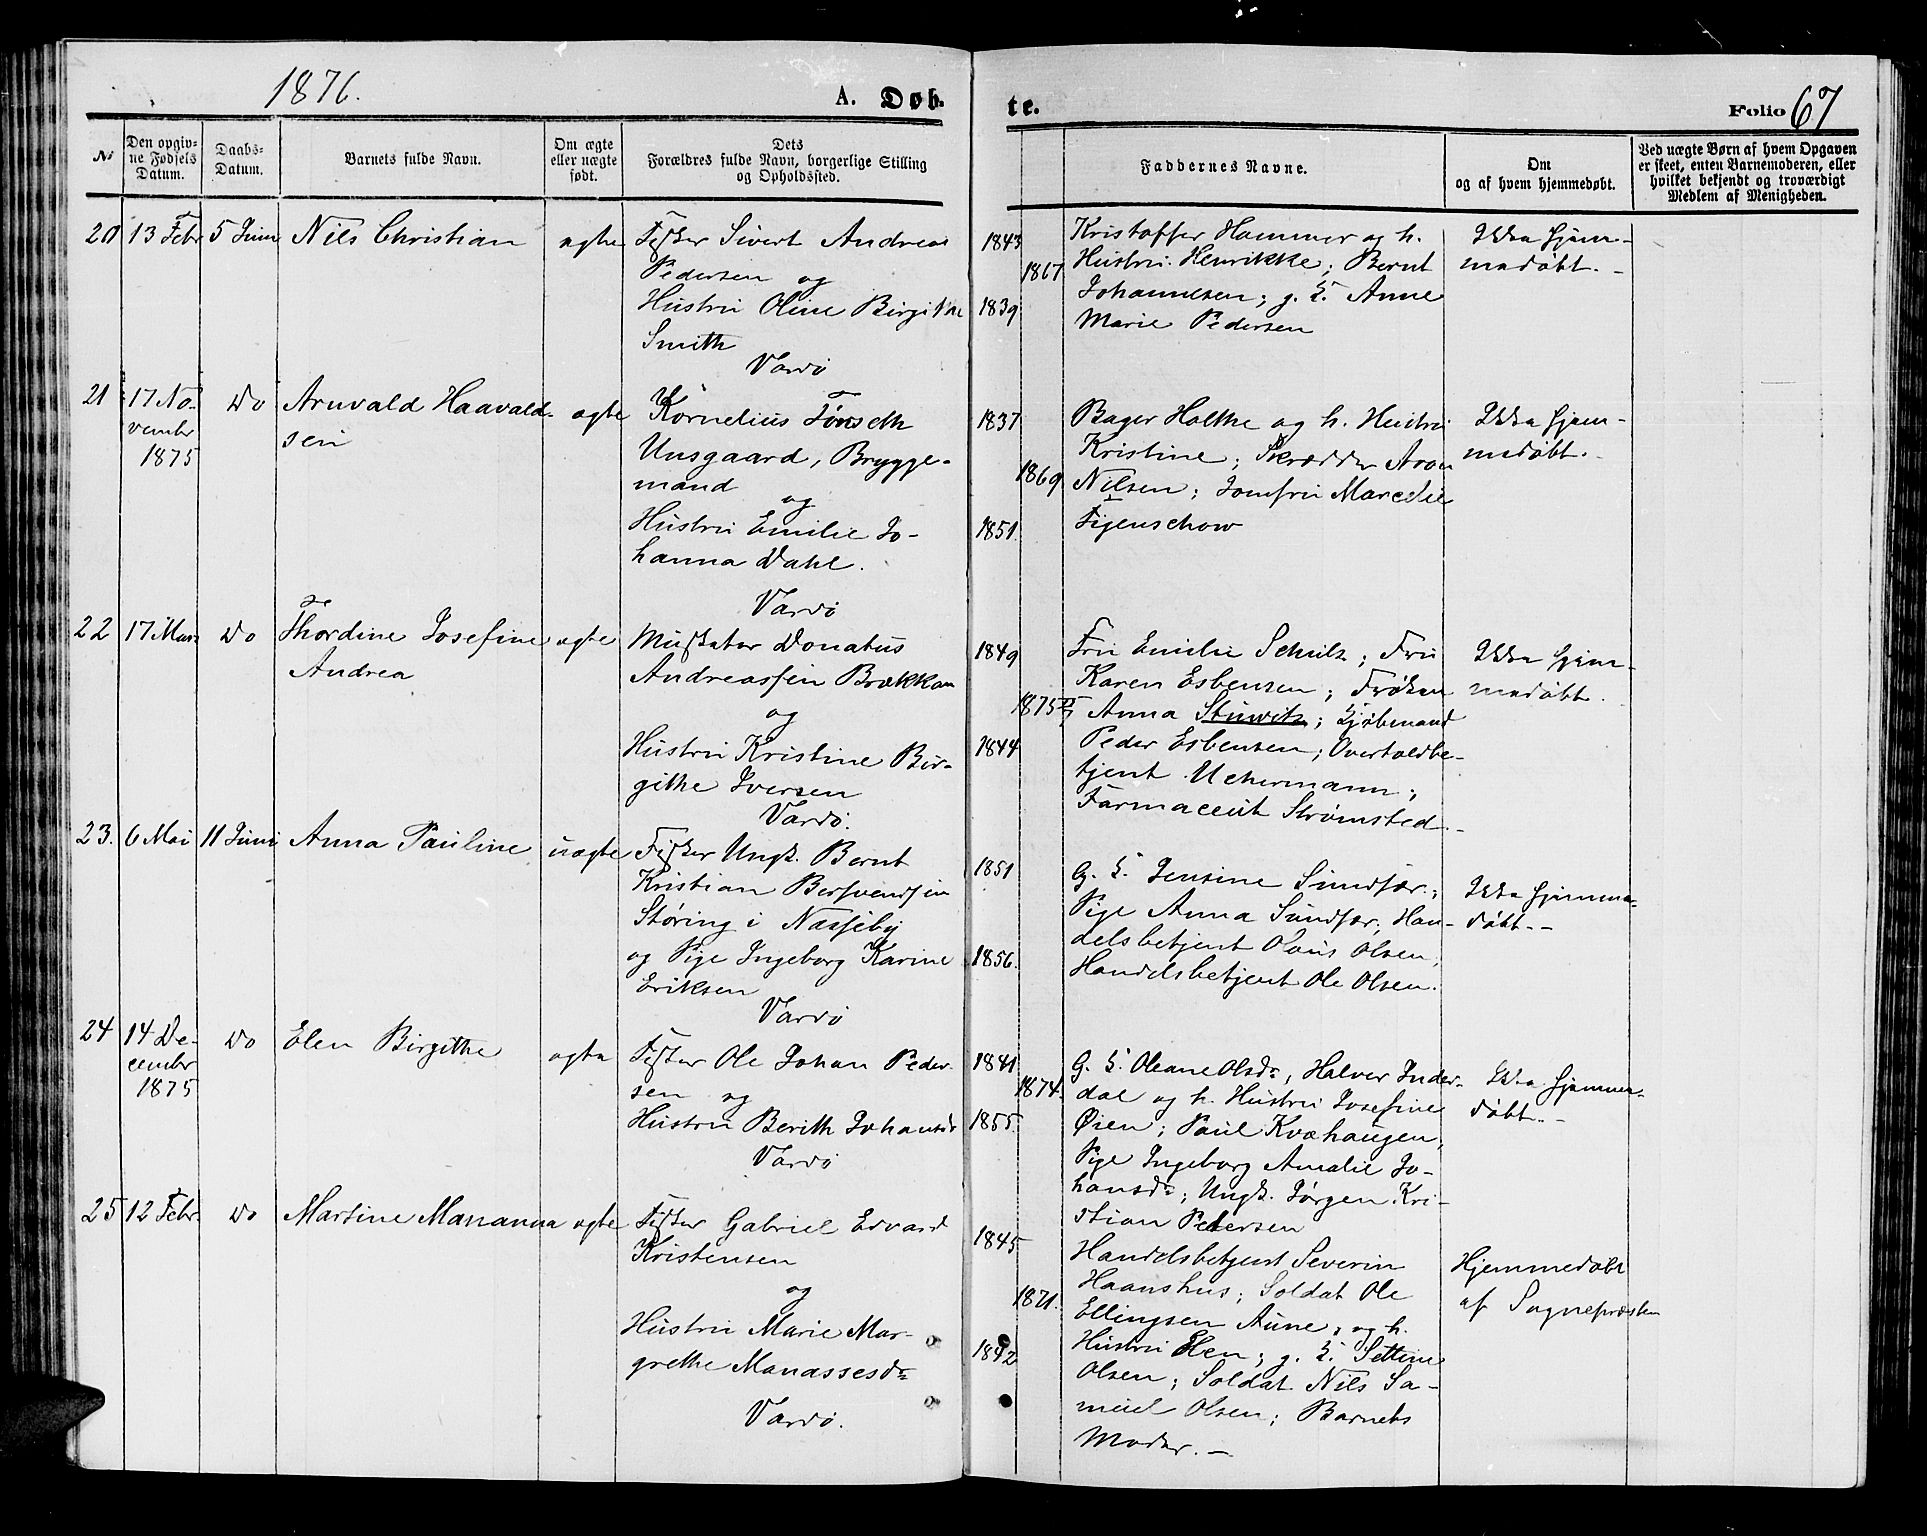 1876.
A. Døb-
te.
Folio 67
No
Den opgiv-
ne Fødsels
Datum.
Daabs-
Datum.
Barnets fulde Navn.
Om ægte
eller uægte
født.
Dets
Forældres fulde Navn, borgerlige Stilling
og Opholdssted.
Faddernes Navne.
Om
og af hvem hjemmedøbt.
Ved uægte Børn af hvem Opgaven
er skeet, enten Barnemoderen, eller
hvilket bekjendt og troværdigt
Medlem af Menigheden.
20
13 Febr
5 Juni
Nils Christian
ægte
Fisker Sivert Andreas
Pedersen og
Hustru Oline Birgitne
Smith
Vardö
1843
1867
1839
Kristoffer Hammer og h.
Hustru Henrikke; Bernt
Johannesen; g. K. Anne
Marie Pedersen
Ikke hjem-
medöbt. -
21
17 No-
vembr
1875
Do
Arnvald Haavald-
sen
ægte
Kornelius Tönseth
Unsgaard, Brygge-
mand
og
Hustru Emilie Jo-
hanna Dahl.
Vardö
1837
1869
1851.
Bager Holthe og h. Hustru
Kristine; Skrædder Aron
Nilsen; Jomfru Marcelie
Figenschow
Ikke hjem-
medöbt. -
22
17 Mars
Do
Thordine Josefine
Andrea
ægte
Musketer Donatus
Andreassen Brækkan
og
Hustru Kristine Bir-
githe Iversen
Vardö.
1849
1875
1844
Fru Emilie Schulz; Fru
Karen Esbensen; Fröken
Anna Stuwitz; Kjöbmand
Peder Esbensen; Overtoldbe-
tjent Uchermann;
Farmaceut Strömsted. -
Ikke hjem-
medöbt.
23.
6 Mai
11 Juni
Anna Pauline
uægte
Fisker Ungk. Bernt
Kristian Bersvendsen
Störing i Næsseby
og Pige Ingeborg Karine
Eriksen
Vardö
1851
1856.
G. K. Jensine Sundfær;
Pige Anna Sundfær; Han-
delsbetjent Olaus Olsen,
Handelsbetjent Ole Olsen.
Ikke hjemme-
döbt. -
24
14 De-
cembr
1875
Do
Elen Birgithe
ægte
Fisker Ole Johan Peder-
sen og
Hustru Berith Johansdr
Vardö
1841
1874.
1855.
G. K. Oleane Olsdr; Halvor Inder-
dal og h. Hustru Josefine
Øien; Paul Kvæhaugen;
Pige Ingeborg Amalie Jo-
hansdr; Ungk. Jörgen Kri-
stian Petersen
Ikke hjemme-
döbt. -
25
12 Febr.
Do
Martine Mananna
ægte
Fisker Gabriel Edvard
Kristensen
og
Hustru Marie Mar-
grethe Manassesdr
Vardö.
1845
1871.
1842
Handelsbetjent Severin
Haanshus; Soldat Ole
Ellingsen Aune, og h.
Hustru Elen; g. K. Settine
Olsen; Soldat Nils Sa-
muel Olsen; Barnets
Moder. -
Hjemmedöbt
af Sognepresten